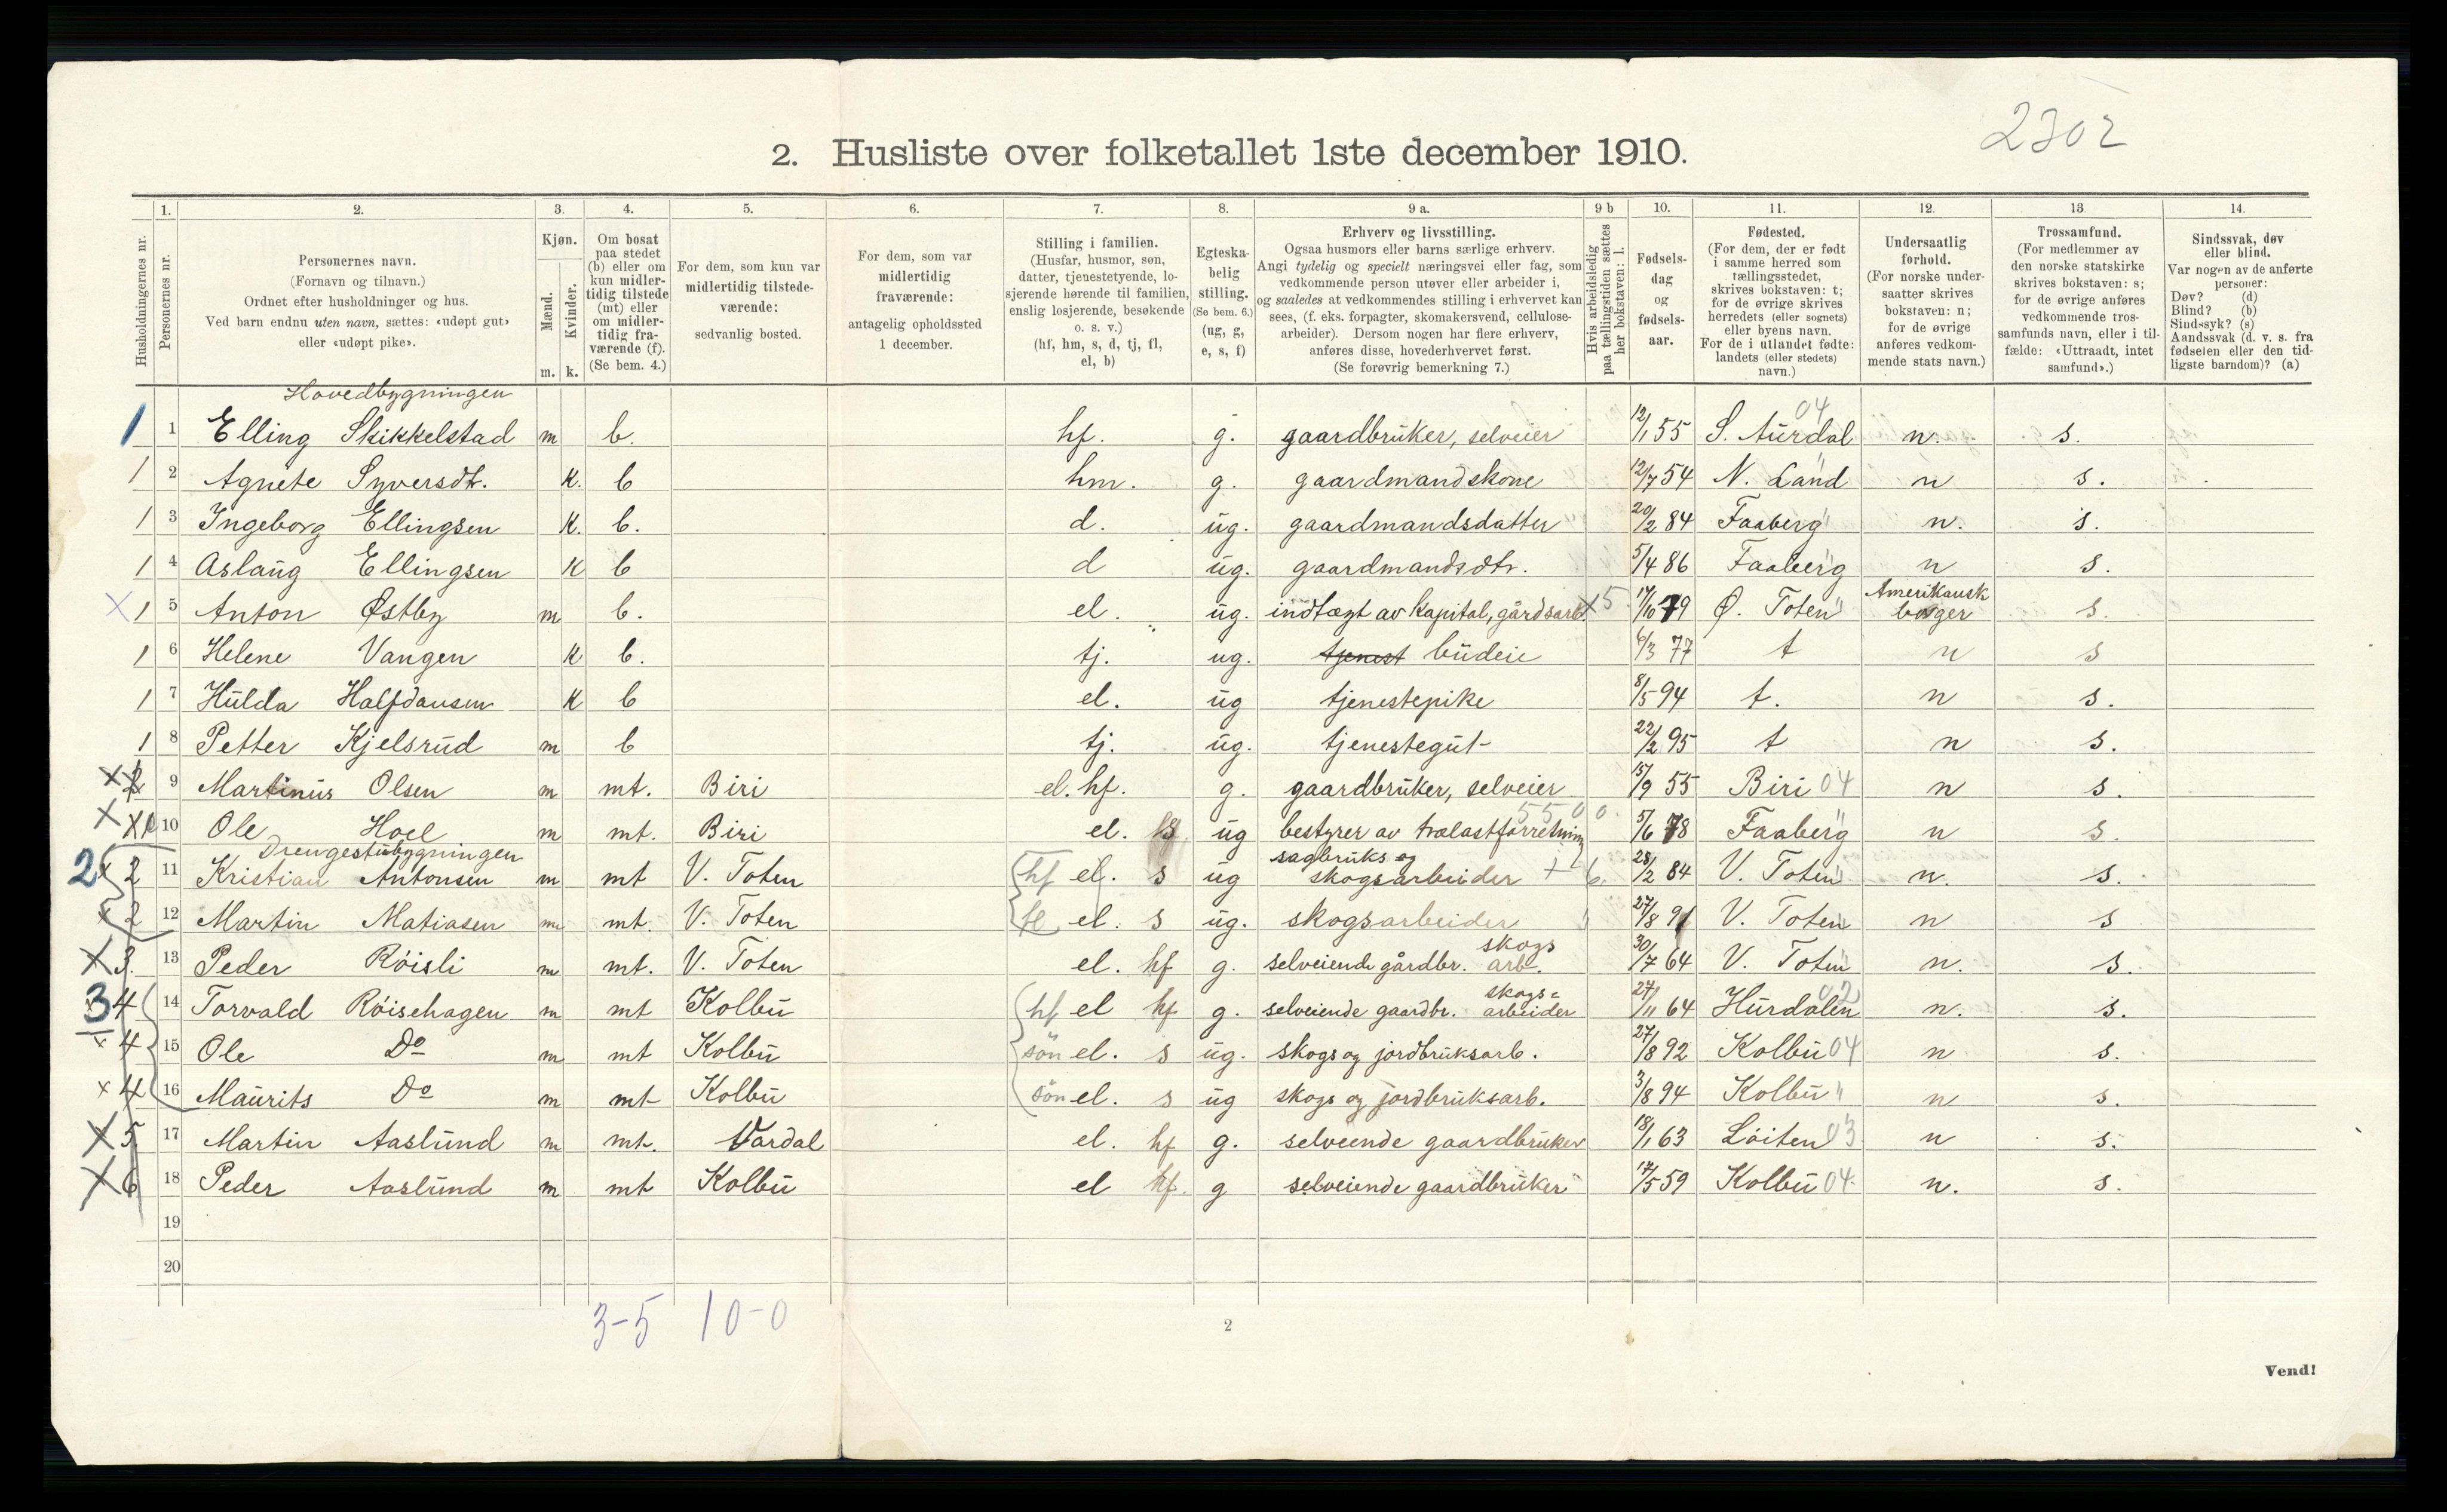 2302
2. Husliste over folketallet 1ste december 1910.
Husholdningernes nr.
1. Personernes nr.
2. Personernes navn.
(Fornavn og tilnavn.)
Ordnet efter husholdninger og hus.
Ved barn endnu uten navn, sættes: «udøpt gut»
eller «udøpt pike».
3. Kjøn.
Mænd. m.
Kvinder. k.
4. Om bosat
paa stedet
(b) eller om
kun midler-
tidig tilstede
(mt) eller
om midler-
tidig fra-
værende (f).
(Se bem. 4.)
5. For dem, som kun var
midlertidig tilstede-
værende:
sedvanlig bosted.
6. For dem, som var
midlertidig
fraværende:
antagelig opholdssted
1 december.
7. Stilling i familien.
(Husfar, husmor, søn,
datter, tjenestetyende, lo-
sjerende hørende til familien,
enslig losjerende, besøkende
o. s. v.)
(hf, hm, s, d, tj, fl,
el, b)
8. Egteska-
belig
stilling.
(Se bem. 6.)
(ug, g,
e, s, f)
9 a. Erhverv og livsstilling.
Ogsaa husmors eller barns særlige erhverv.
Angi tydelig og specielt næringsvei eller fag, som
vedkommende person utøver eller arbeider i,
og saaledes at vedkommendes stilling i erhvervet kan
sees, (f. eks. forpagter, skomakersvend, cellulose-
arbeider). Dersom nogen har flere erhverv,
anføres disse, hovederhvervet først.
(Se forøvrig bemerkning 7.)
9 b Hvis arbeidsledig
paa tællingstiden sættes
her bokstaven: l.
10. Fødsels-
dag
og
fødsels-
aar.
11. Fødested.
(For dem, der er født
i samme herred som
tællingsstedet,
skrives bokstaven: t;
for de øvrige skrives
herredets (eller sognets)
eller byens navn.
For de i utlandet fødte:
landets (eller stedets)
navn.)
12. Undersaatlig
forhold.
(For norske under-
saatter skrives
bokstaven: n;
for de øvrige
anføres vedkom-
mende stats navn.)
13. Trossamfund.
(For medlemmer av
den norske statskirke
skrives bokstaven: s;
for de øvrige anføres
vedkommende tros-
samfunds navn, eller i til-
fælde: «Uttraadt, intet
samfund».)
14. Sindssvak, døv
eller blind.
Var nogen av de anførte
personer:
Døv? (d)
Blind? (b)
Sindssyk? (s)
Aandssvak (d. v. s. fra
fødselen eller den tid-
ligste barndom)? (a)
Hovedbygningen
1 1 Elling Skikkelstad m b. hf. g. gaardbruker, selveier 12/1 55 S. Aurdal 04 n. s.
1 2 Agnete Syversdt. K. b hm. g. gaardmandskone 12/7 54 N. Land " n s.
1 3 Ingeborg Ellingsen K. b. d. ug. gaardmandsdatter 20/2 84 Faaberg " n. s.
1 4 Aslaug Ellingsen K b d ug. gaardmandsdtr. 5/4 86 Faaberg " n s.
X 1 5 Anton Østby m b. el. ug. indtægt av kapital, gårdsarb. X5 17/10 79 Ø. Toten " Amerikansk borger s.
1 6 Helene Vangen K b. tj. ug. tjenest budeie 6/3 77 t n s
1 7 Hulda Halfdansen K b el. ug tjenestepike 8/5 94 t. n s.
1 8 Petter Kjelsrud m b tj. ug. tjenestegut 22/2 95 t n s.
X 2 9 Martinus Olsen m mt. Biri el. hf. g. gaardbruker, selveier 15/9 55 Biri 04 n s.
5500
X X1 10 Ole Hoel m mt. Biri el. ug bestyrer av trælastforretning 5/6 78 Faaberg " n s.
Drengestubygningen
2 x 2 11 Kristian Antonsen m mt V. Toten hf el. s ug sagbruks og skogsarbeider + 6. 28/2 84 V. Toten " n. s.
x 2 12 Martin Matiasen m mt. V. Toten fl el. s ug. skogsarbeider 27/8 91 V. Toten " n s
X 3. 13 Peder Röisli m mt. V. Toten el. hf g. selveiende gårdbr. skogs arb. 30/7 64 V. Toten " n. s.
3 4 14 Torvald Röisehagen m mt Kolbu hf el hf g. selveiende gaardbr. skogs= arbeider 27/11 64 Hurdalen 02 n. s.
x 4 15 Ole Do m mt Kolbu sön el. s ug. skogs og jordbruksarb. 27/8 92 Kolbu 04 n s.
x 4 16 Maurits Do m mt Kolbu sön el. s ug skogs og jordbruksarb. 3/8 94 Kolbu " n s.
X 5 17 Martin Aaslund m mt. Vardal el. hf g. selveende gaardbruker 18/1 63 Löiten 03 n s.
X 6 18 Peder Aaslund m mt Kolbu el hf. g selveiende gaardbruker 17/5 59 Kolbu 04. n. s.
19
20
3-5 10-0
2
Vend!